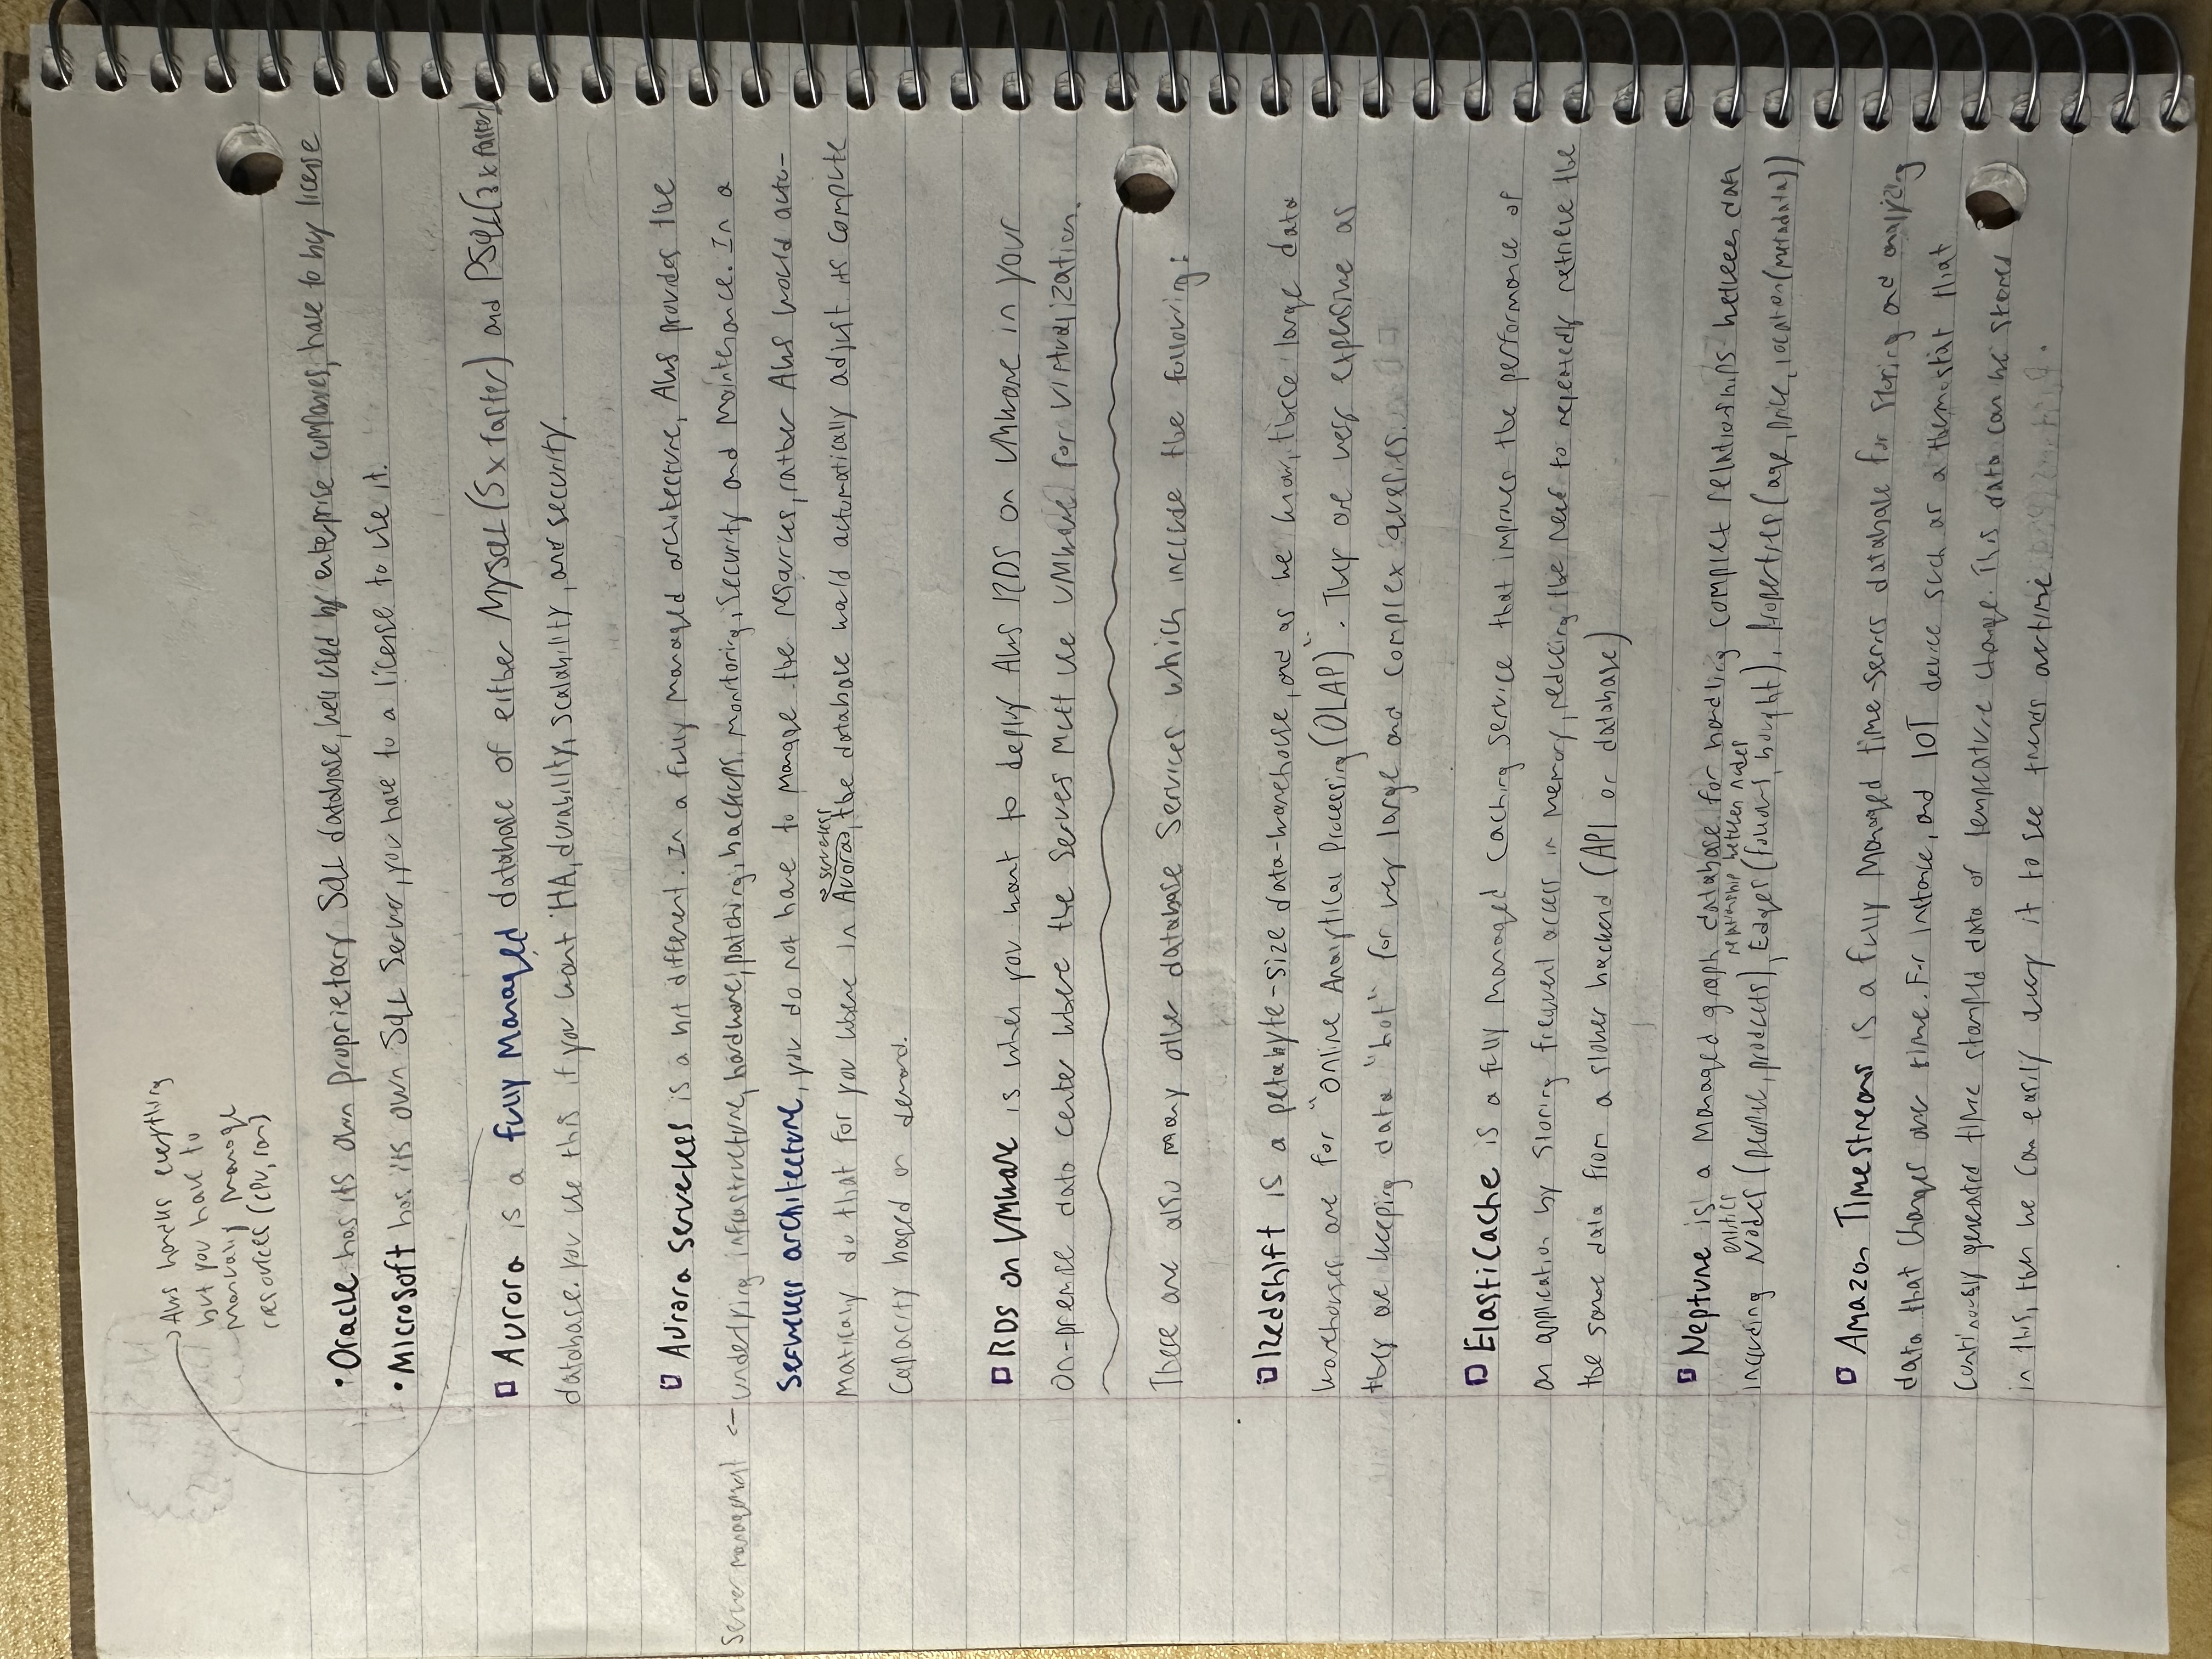 AWS handles everything
but you have to
manually manage
resources (CPU, ram)
• Oracle has its own proprietary SQL database, well used by enterprise companies, have to buy license
• Microsoft has its own SQL Server, you have to a license to use it.
Aurora is a fully managed database of either MySQL (5x faster) and PSQL (3x faster)
database. you use this if you want HA, durability, scalability, and security.
Aurora Serverless is a bit different. In a fully managed architecture, AWS provides the
Server management ← underlying infrastructure, hardware, patching, backups, monitoring, security and maintenance. In a
Serverless architecture, you do not have to manage the resources, rather AWS would auto-
serverless
matically do that for you where in Auroras, the database would automatically adjust its compute
capacity based on demand.
RDS on VMware is when you want to deploy AWS RDS on VMware in your
on-premise data center where the servers must use VMware for virtualization.
There are also many other database services which include the following:
Redshift is a petabyte-size data-warehouse, and as we know, these large data
warehouses are for "Online Analytical Processing (OLAP)". They are very expensive as
they are keeping data "hot" for very large and complex queries.
ElastiCache is a fully managed caching service that improves the performance of
an application by storing frequent access in memory, reducing the need to repeatedly retrieve the
the same data from a slower backend (API or database)
Neptune is a managed graph database for handling complex relationships between data
entities relationship between nodes
including Nodes (people, products), Edges (follows, bought), Properties (age, price, location (metadata))
Amazon Timestreams is a fully managed time-series database for storing and analyzing
data that changes over time. For instance, and IOT device such as a thermostat that
continuously generated time stamped data of temperature change. This data can be stored
in this, then we can easily query it to see trends overtime